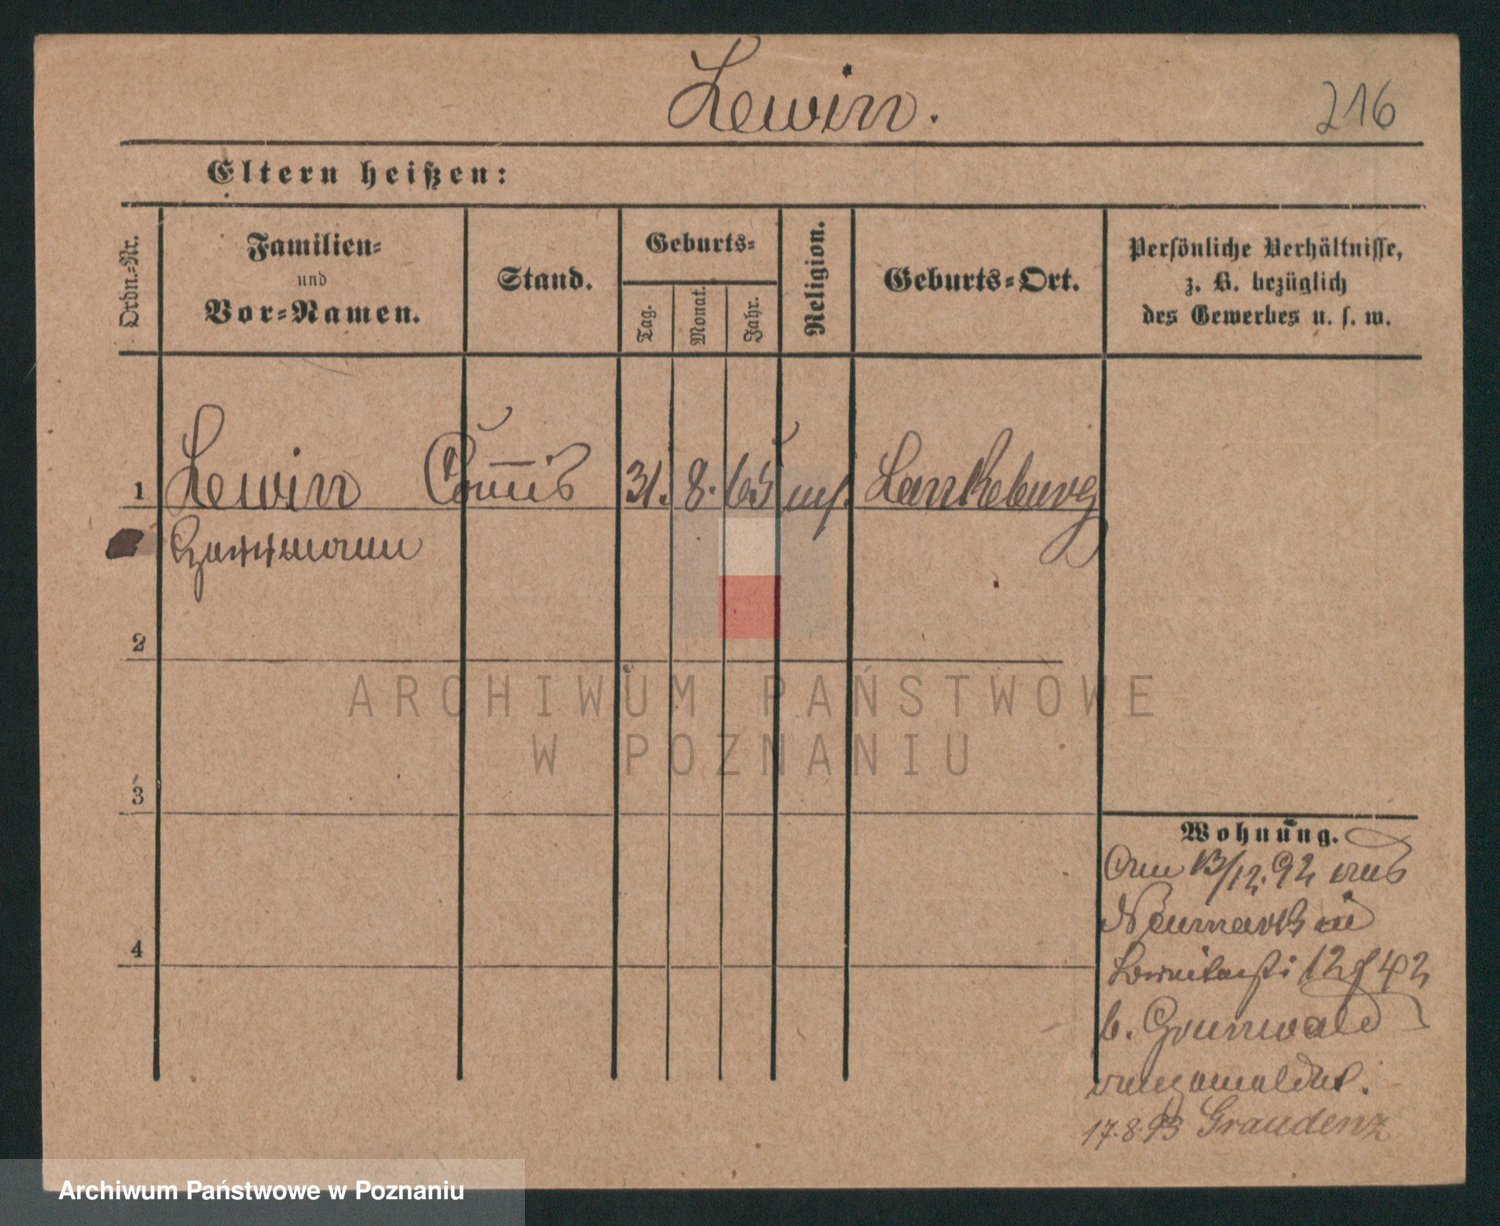 Lewin.
216
Eltern heißen:
Ordn.-Nr.
Familien-
und
Vor-Namen.
Stand.
Geburts-
Tag.
Monat.
Jahr.
Religion.
Geburts-Ort.
Persönliche Verhältnisse,
z. B. bezüglich
des Gewerbes u. s. w.
1 Lewin Commis 31. 8. 65 Lankeburg
Hermann
2
ARCHIWUM PAŃSTWOWE
W POZNANIU
3
4
Wohnung.
Am 13/12. 92 aus
Neumark in
12 42
b. Grunwald
angemeldet.
17.8.93 Graudenz
Archiwum Państwowe w Poznaniu